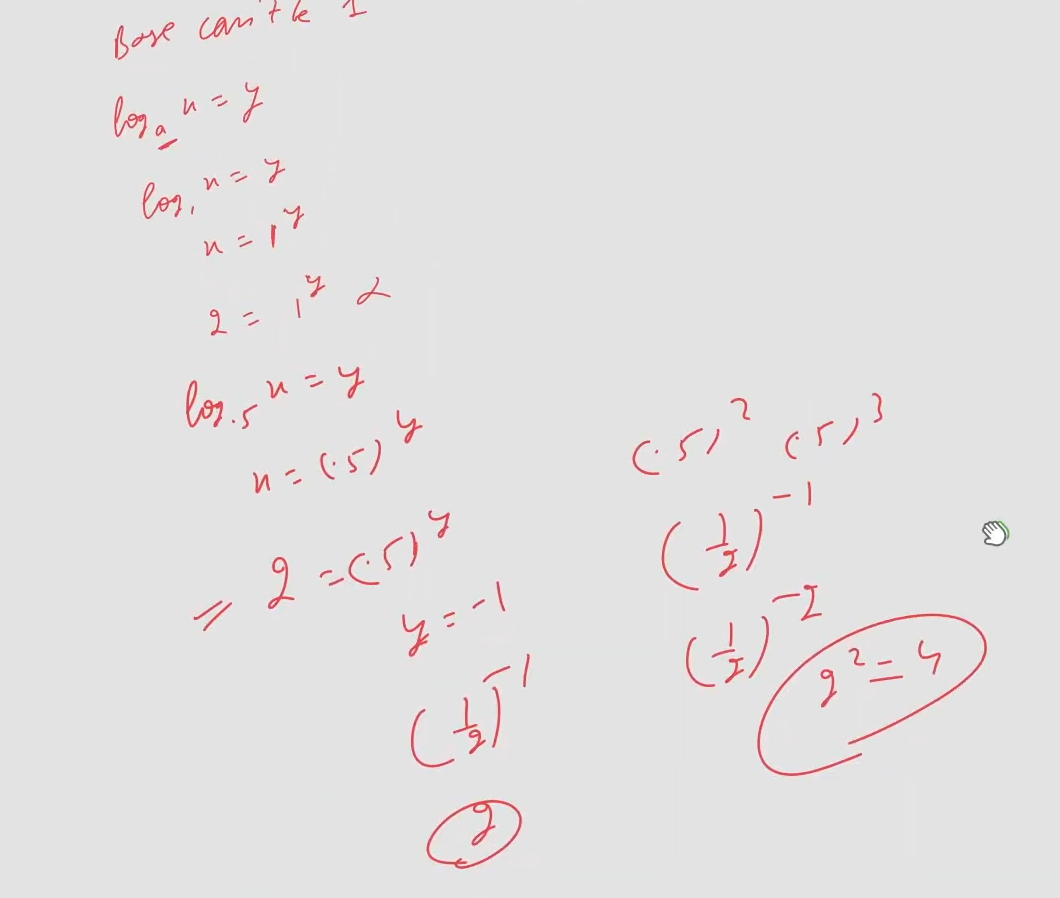 Base can't be 1
logₐ x = y
log₁ x = y
x = 1^y
2 = 1^y
log.5 x = y
x = (.5)^y
⇒ 2 = (.5)^y
y = -1
(1/2)^-1
2
(.5)^2 (.5)^3
(1/2)^-1
(1/2)^-2
2^2 = 4